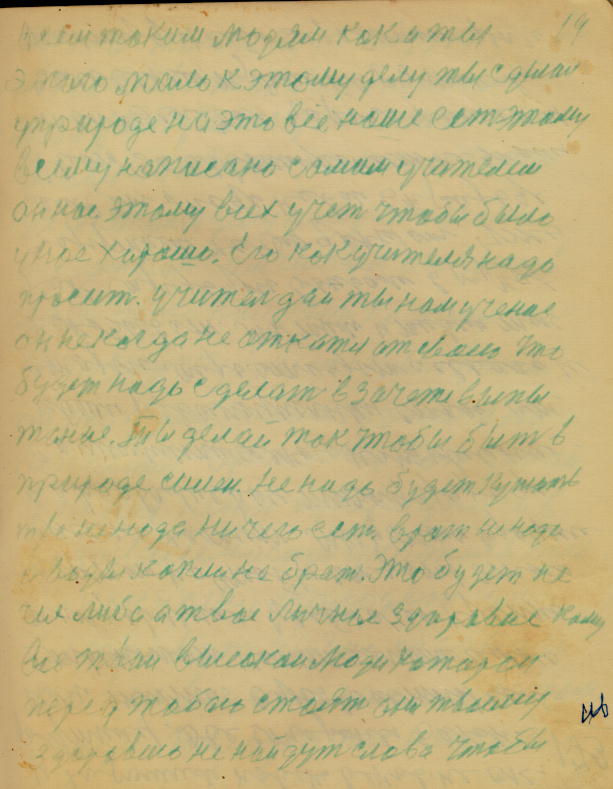 всем таким людям как и ты 19
этого мало к этому делу ты сделай
у природе на это все наше ест этому
всему написано самим учителем
он нас этому всех учет чтобы было
у нас хорошо. Его как учителя надо
просит. учител дай ты нам учение
он некогда не откатя от своего что
будет надо сделат в зачете
тание. Ты делай так чтобы быт в
природе силен. Не надо будет кушать
тебе не нада ничего ест. в рот не нада
воды капли не брат. Это будет не
чия либо а твое личное здоровие кому
все твои высокаи люди катораи
перед табою стоят они твоему
здоровию не найдут слова чтобы